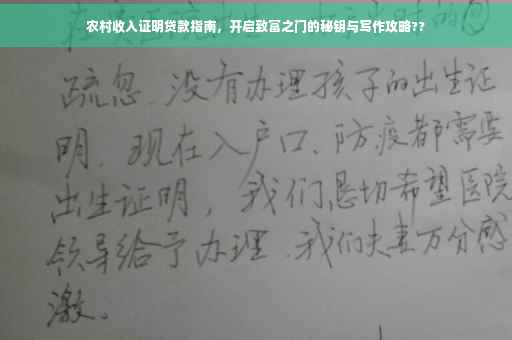 农村收入证明贷款指南，开启致富之门的秘钥与写作攻略??
疏忽、没有办理孩子的出生证
明、现在入户口、防疫都需要
出生证明，我们恳切希望医院
领导给予办理、我们夫妻万分感
激。